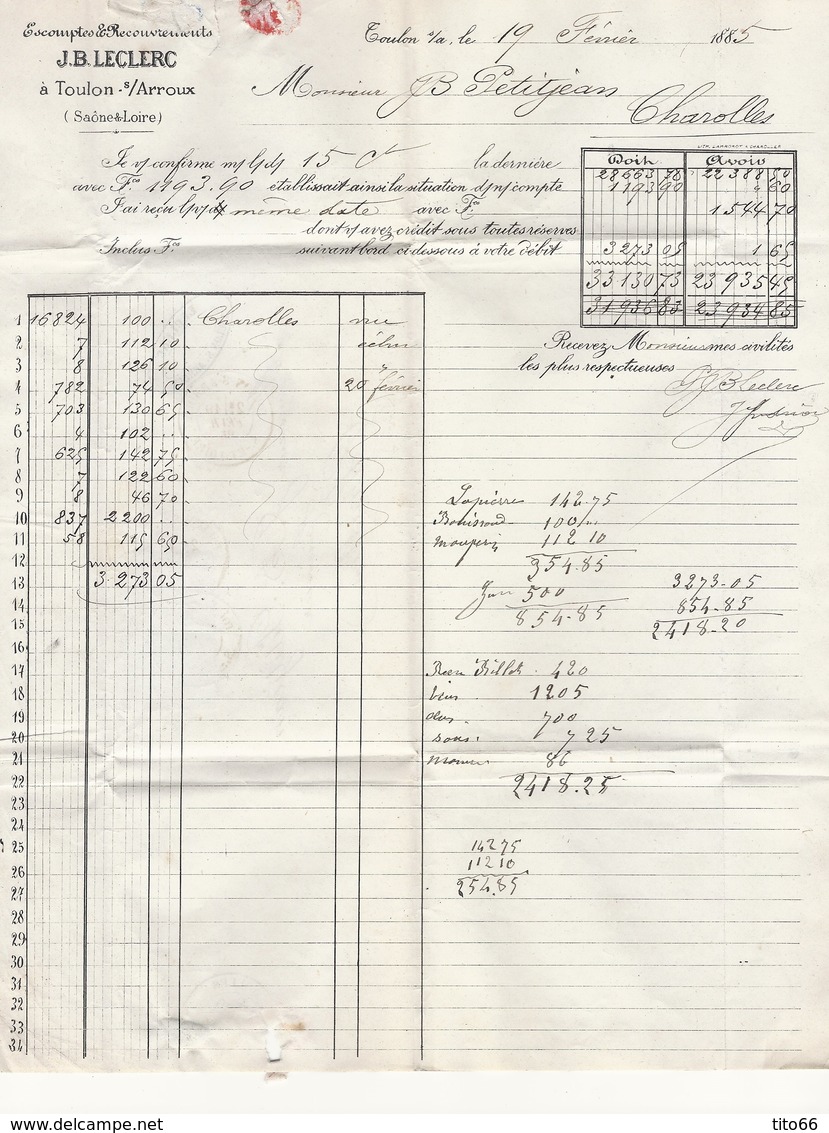 Escomptes & Recouvrements
J.B. LECLERC
à Toulon s/Arroux
(Saône & Loire)
Toulon s/a, le 19 Février 1885
Monsieur JB Petitjean
Charolles
Je v/ confirme m/ l/ d/ 15 ct la dernière
avec Fcs 1193.90 établissait ainsi la situation d/ n/ compte
J'ai reçu l/ v/ d/ même date avec Fcs
dont v/ avez crédit sous toutes réserves
Inclus Fcs suivant bord. ci dessous à votre débit
LITH. LAMBOROT A CHAROLLES
Doit Avoir
28663 78 22388 50
1193 90 " 60
1544 70
3273 05 1 65
33130 73 23935 45
31936 83 23934 85
Recevez Monsieur mes civilités
les plus respectueuses
JBLeclerc
1 16824 100 .. Charolles vue
2 7 112 10
3 8 126 10 "
4 782 74 50 20 février
5 703 130 65
6 4 102 ..
7 625 142 75
8 7 122 60
9 8 46 70
10 837 2200 ..
11 58 115 60
12
13 3273 05
14
15
16
17
18
19
20
21
22
23
24
25
26
27
28
29
30
31
32
33
34
Lapierre 142.75
100
112 10
354.85
500
854.85
3273.05
854.85
2418.20
Billets 420
1205
700
sous. 7 25
86
2418.25
142 75
112 10
254.85
delcampe.net
tito66